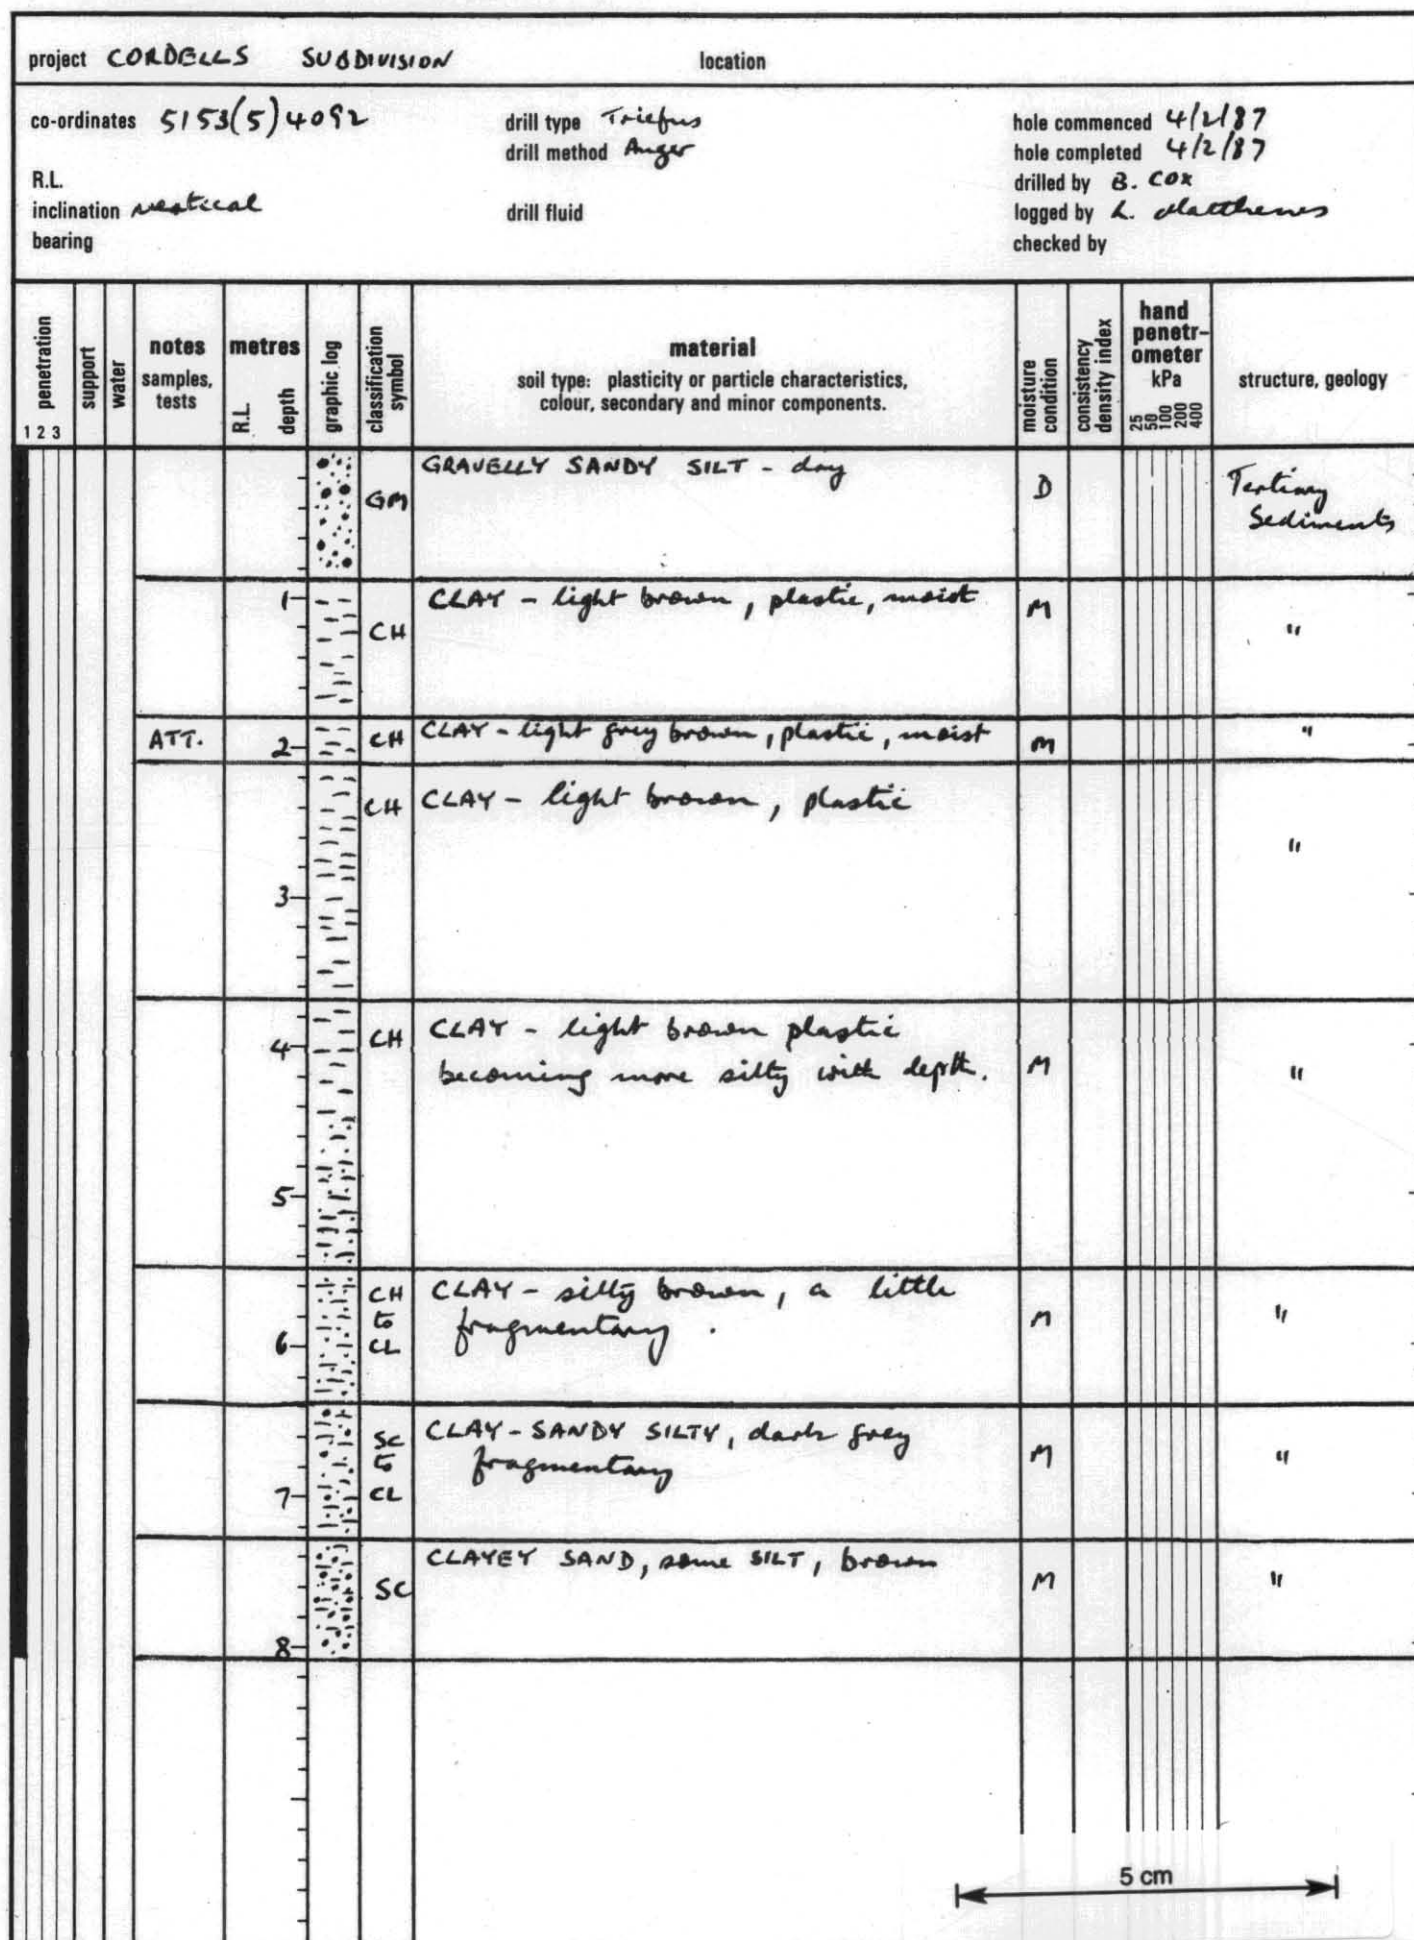 project CORDELLS SUBDIVISION location
co-ordinates 5153(5)4092 drill type Triefus hole commenced 4/2/87
drill method Auger hole completed 4/2/87
R.L. drilled by B. COX
inclination vertical drill fluid logged by L. Matthews
bearing checked by
penetration
1 2 3
support
water
notes
samples,
tests
metres
R.L.
depth
graphic log
classification
symbol
material
soil type: plasticity or particle characteristics,
colour, secondary and minor components.
moisture
condition
consistency
density index
hand
penetr-
ometer
kPa
25
50
100
200
400
structure, geology
GM GRAVELLY SANDY SILT - dry D Tertiary
Sediments
1 CH CLAY - light brown, plastic, moist M "
ATT. 2 CH CLAY - light grey brown, plastic, moist M "
CH CLAY - light brown, plastic "
3
4 CH CLAY - light brown plastic
becoming more silty with depth. M "
5
CH CLAY - silty brown, a little
to fragmentary. M "
6 CL
SC CLAY - SANDY SILTY, dark grey
to fragmentary M "
7 CL
CLAYEY SAND, some SILT, brown
SC M "
8
5 cm